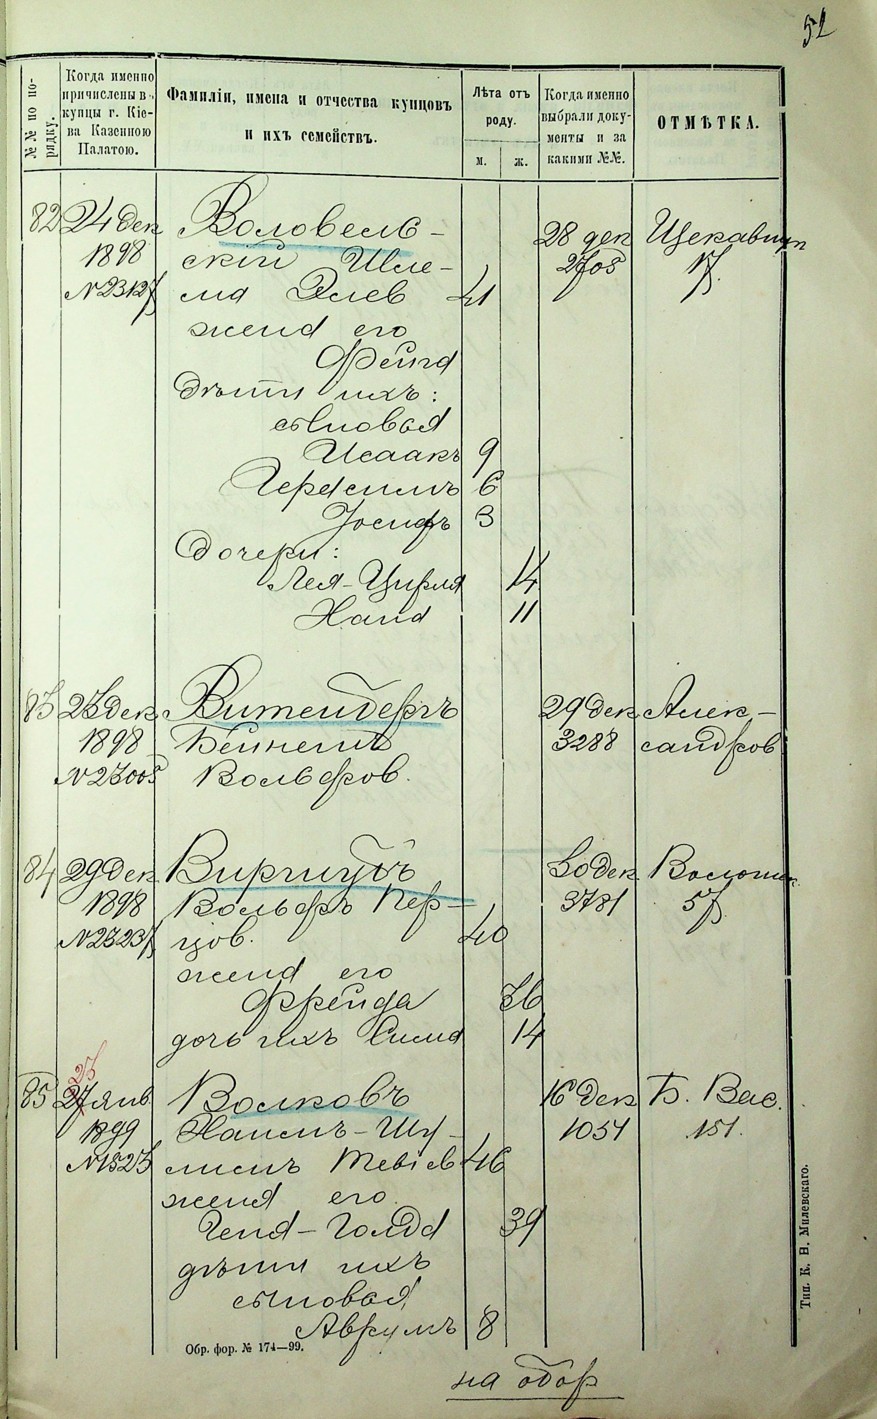 51
№№ по по-
рядку.
Когда именно
причислены въ
купцы г. Кіе-
ва Казенною
Палатою.
Фамиліи, имена и отчества купцовъ
и ихъ семействъ.
Лѣта отъ
роду.
м.
ж.
Когда именно
выбрали доку-
менты и за
какими №№.
ОТМѢТКА.
82 24 дек Воловель- 28 дек Щекавицк
1898 скій Шле- 2705 17
№23127 ма Элев 41
жена его
Фейга
Дѣти ихъ:
сыновья
Исаакъ 9
Герасимъ 6
Іосифъ 3
Дочери:
Лея-Цирля 14
Хана 11
83 23 дек Витенбергъ 29 дек Алек-
1898 Бейнешъ 3288 сандров
№23005 Вольфов.
84 29 дек 30 дек
1898 Вольфъ Пер- 3781 57
№23237 цов. 40
жена его
Фрейда 36
дочь ихъ Сима 14
25
85 27 янв Волковъ 16 дек Б. Вас.
1899 Хаимъ-Шу- 1054 151.
№1523 лимъ Тевіев 46
жена его
Гена-Голда 39
дѣти ихъ
сыновья
Аврумъ 8
Обр. фор. № 174—99.
на обор
Тип. К. Н. Милевскаго.